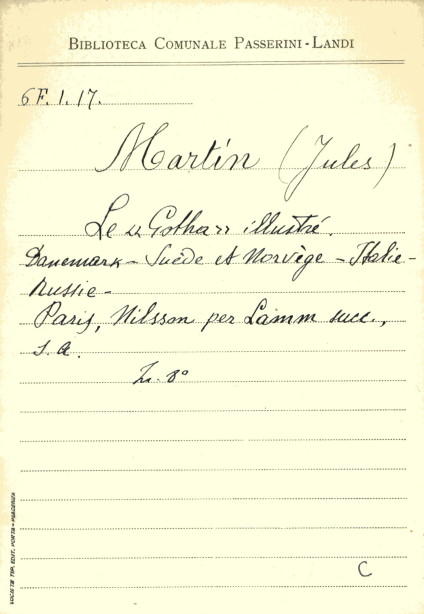 BIBLIOTECA COMUNALE PASSERINI-LANDI
6F.1.17.
Martin (Jules)
Le "Gotha" illustré.
Danemark - Suède et Norvège - Italie -
Russie -
Paris, Nilsson per Lamm succ.,
s.a.
8°
C
SOCIETÀ TIP. EDIT. PORTA - PIACENZA